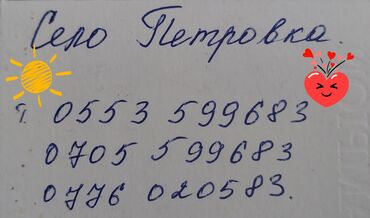 Село Петровка.
т. 0553 599683
0705 599683
0776 020583.